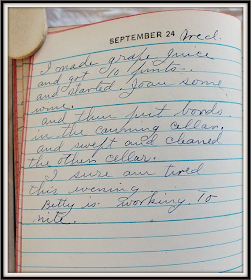 SEPTEMBER 24 Wed.
I made grape juice
and got 10 pints.
and started Joan some
wine.
and then put boards
in the canning cellar.
and swept and cleaned
the other cellar.
I sure am tired
this evening
Betty is working to
nite.